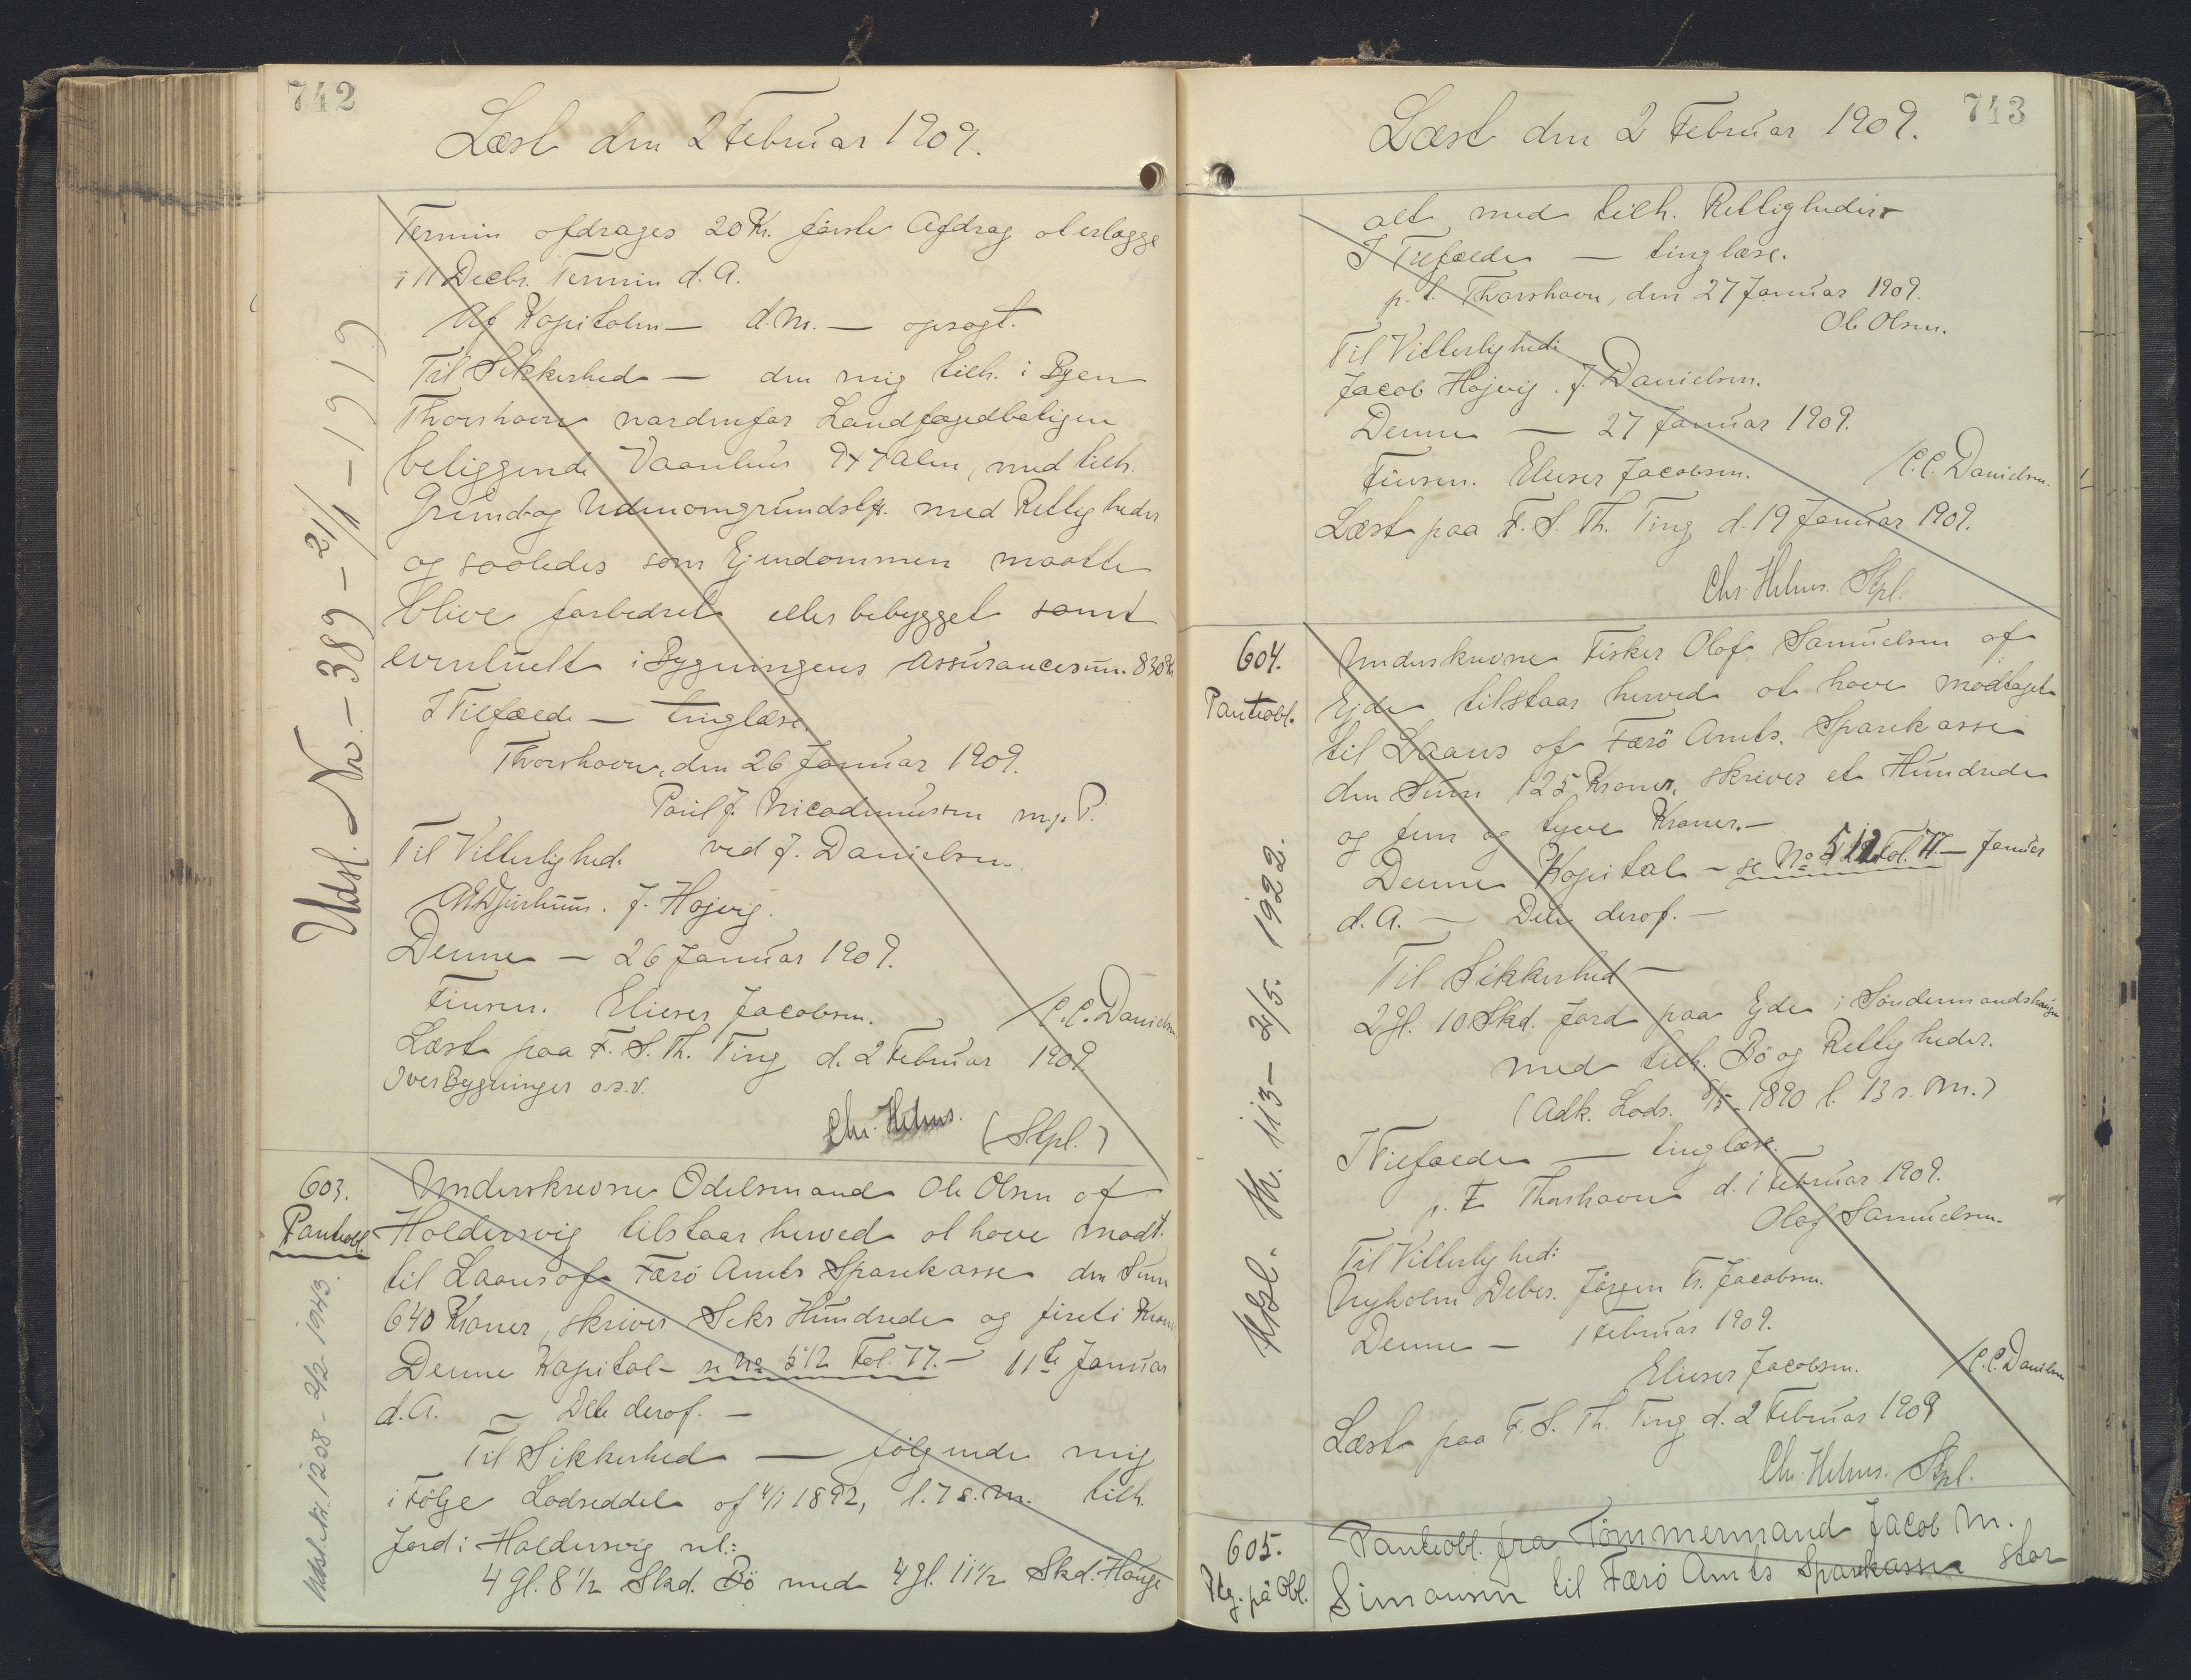 742
Læst den 2 Februar 1909.
Termin afdrages 20 Kr. første Afdrag at erlægge
i 11 Decbr. Termin d. A.
Af Kapitalen — d. M. — opsagt.
Til Sikkerhed — den mig tilh. i Byen
Thorshavn nordenfor Landfogedboligen
beliggende Vaanhus 9x7 Alen, med tilh.
Grund og Udenomgrundstk. med Rettigheder
og saaledes som Ejendommen maatte
blive forbedret eller bebygget samt
eventuelt i Bygningens Assurancesum. 830 Kr
I Tilfælde — tinglæse.
Thorshavn, den 26 Januar 1909.
Poul J. Nicodemussen m. p. P.
Til Vitterlighed. ved J. Danielsen.
J. Højvig.
Denne — 26 Januar 1909.
Finsen. Elieser Jacobsen. / C. C. Danielsen
Læst paa F. S. Th. Ting d. 2 Februar 1909
Over Bygninger o. s. v.
Chr. Helms. (Stpl.)
Udsl. Nr. – 389 – 21/11 – 1919
603.
Panteobl.
Underskrevne Odelsmand Ole Olsen af
Haldersvig tilstaar herved at have modt.
til Laans af Færö Amts Sparekasse den Sum
640 Kroner, skriver Seks Hundrede og fireti Kron
Denne Kapital – se No 512 Fol. 77. – 11te Januar
d. A. — Dele deraf. —
Til Sikkerhed — følgende mig
i Følge Lodseddel af 4/1 1892, l. 7 s. M. tilh.
Jord i Haldersvig nl.:
4 Gl. 8 1/2 Skd. Bö med 4 gl. 11 1/2 Skd. Hauge
Udsl. Nr. 1208 – 2/2 – 1943.
743
Læst den 2 Februar 1909.
alt med tilh. Rettigheder
I Tilfælde — tinglæse.
p. t. Thorshavn, den 27 Januar 1909.
Ole Olsen.
Til Vitterlighed:
Jacob Højvig. J. Danielsen.
Denne — 27 Januar 1909.
Finsen. Elieser Jacobsen. / C. C. Danielsen.
Læst paa F. S. Th. Ting d. 19 Januar 1909.
Chr. Helms. Stpl.
604.
Panteobl.
Underskrevne Fisker Olof Samuelsen af
Ejde tilstaar herved at have modtaget
til Laans af Færö Amts. Sparekasse
den Sum 125 Kroner, skriver et Hundrede
og fem og tyve Kroner. —
Denne Kapital – se No 512 Fol. 77. – Januar
d. A. — Dele deraf. —
Til Sikkerhed —
2 Gl. 10 Skd. Jord paa Ejde i Søndermandshaugen
med tilh. Bö og Rettigheder.
(Adk. Lods. 8/5 – 1890 l. 13 s. M.)
I Tilfælde — tinglæse.
p. t. Thorshavn d. 1 Februar 1909.
Olof Samuelsen.
Til Vitterlighed:
Nyholm Debes. Jørgen Fr. Jacobsen.
Denne — 1 Februar 1909.
Elieser Jacobsen. / C. C. Danielsen
Læst paa F. S. Th. Ting d. 2 Februar 1909
Chr. Helms. Stpl.
Udsl. Nr. 113 – 2/5. 1922.
605.
Ptg. på Obl.
Panteobl. fra Tømmermand Jacob M.
Simonsen til Færö Amts Sparekasse stor